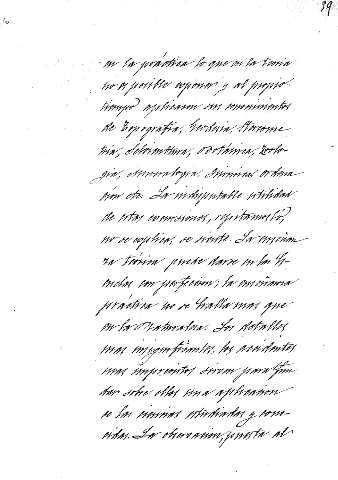 39
en la práctica lo que en la teoría
no es posible exponer y al propio
tiempo aplicaron sus conocimientos
de Topografía, Geodesia, Xerome-
tría, Selvicultura, Botánica, Zoolo-
gía, Mineralogía, Química, ordena-
ción etc. La indisputable utilidad
de estas excursiones, repetámoslo,
no se explica, se siente. La enseñan-
za teórica puede darse en las Es-
cuelas con perfeccion; la enseñanza
práctica no se halla mas que
en la Naturaleza. Los detalles
mas insignificantes, los accidentes
mas imprevistos sirven para fun-
dar sobre ellos una aplicacion
de las ciencias estudiadas y cono-
cidas. La observacion, puesta al